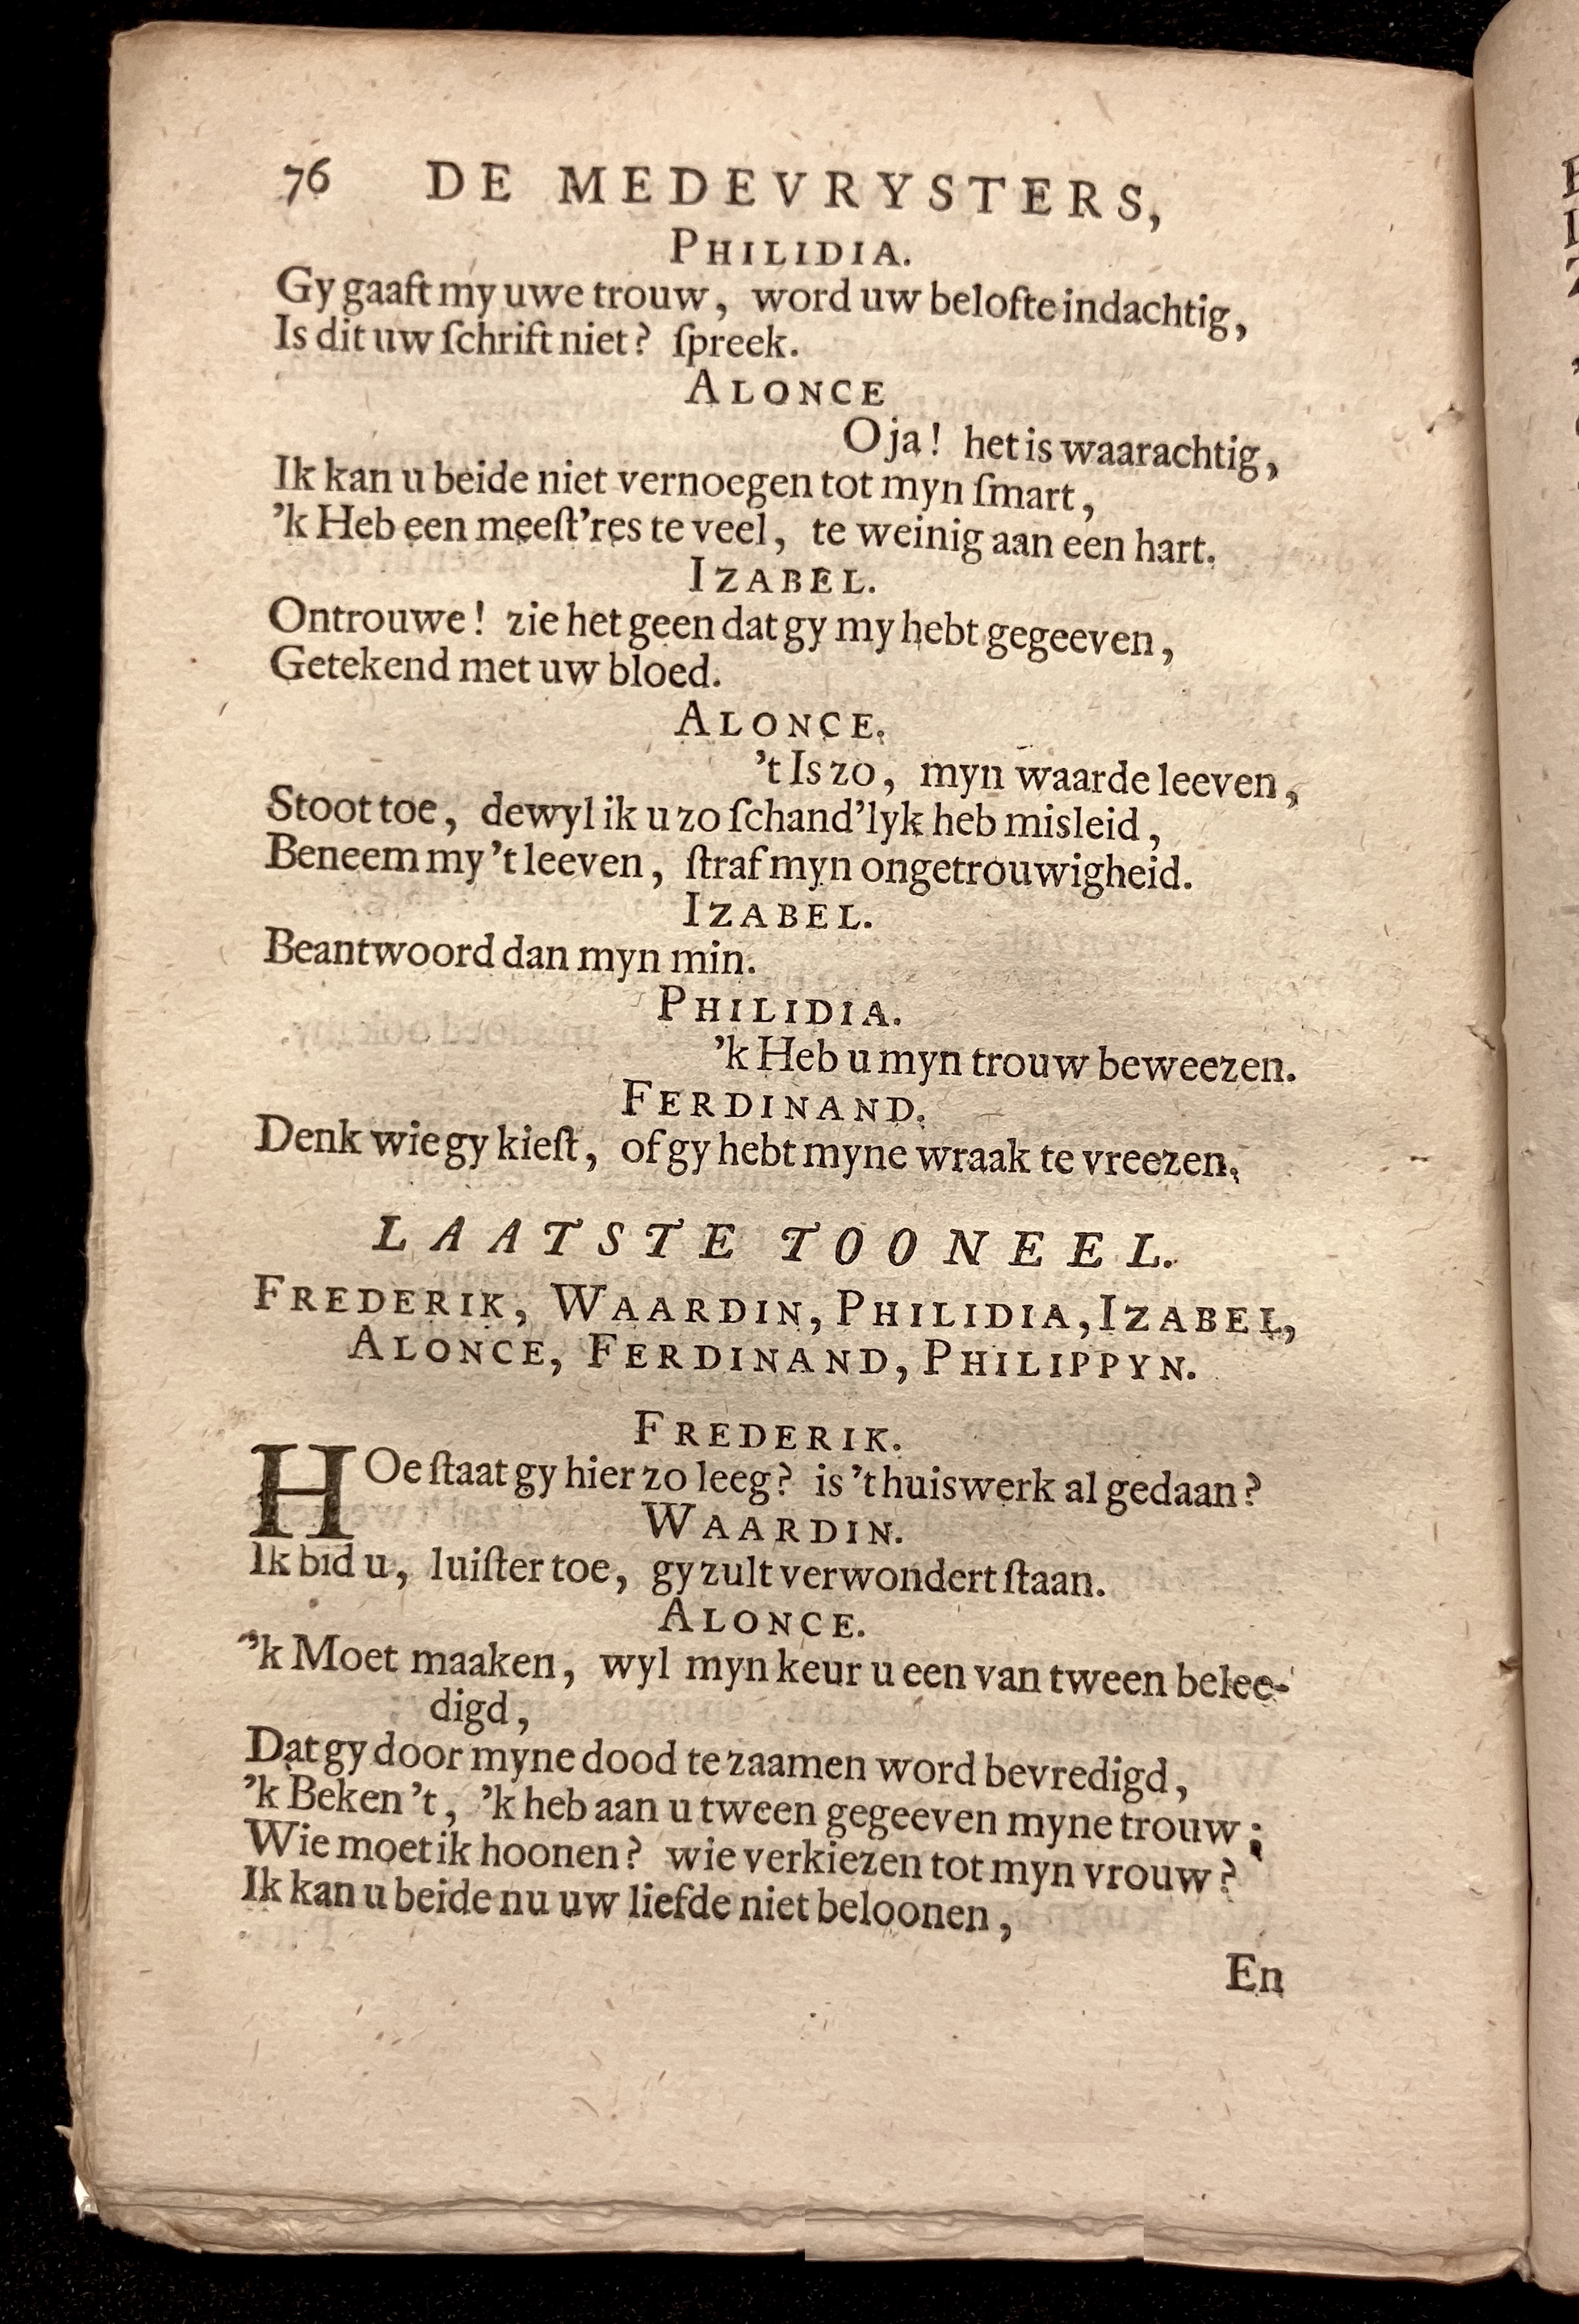 76 DE MEDEVRYSTERS,
PHILIDIA.
Gy gaaſt my uwe trouw, word uw belofte indachtig,
Is dit uw ſchrift niet? ſpreek.
ALONCE
O ja! het is waarachtig,
Ik kan u beide niet vernoegen tot myn ſmart,
'k Heb een meeſt'res te veel, te weinig aan een hart.
IZABEL.
Ontrouwe! zie het geen dat gy my hebt gegeeven,
Getekend met uw bloed.
ALONCE.
't Is zo, myn waarde leeven,
Stoot toe, dewyl ik u zo ſchand'lyk heb misleid,
Beneem my 't leeven, ſtraf myn ongetrouwigheid.
IZABEL.
Beantwoord dan myn min.
PHILIDIA.
'k Heb u myn trouw beweezen.
FERDINAND.
Denk wie gy kieſt, of gy hebt myne wraak te vreezen.
LAATSTE TOONEEL.
FREDERIK, WAARDIN, PHILIDIA, IZABEL,
ALONCE, FERDINAND, PHILIPPYN.
FREDERIK.
HOe ſtaat gy hier zo leeg? is 't huiswerk al gedaan?
WAARDIN.
Ik bid u, luiſter toe, gy zult verwondert ſtaan.
ALONCE.
'k Moet maaken, wyl myn keur u een van tween belee-
digd,
Dat gy door myne dood te zaamen word bevredigd,
'k Beken 't, 'k heb aan u tween gegeeven myne trouw;
Wie moet ik hoonen? wie verkiezen tot myn vrouw?
Ik kan u beide nu uw liefde niet beloonen,
En